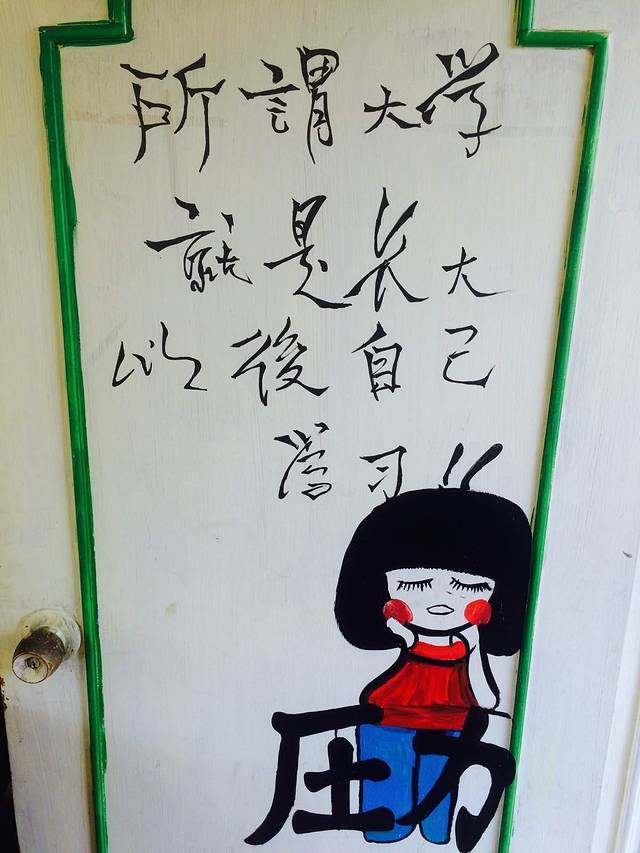 所謂大学
就是长大
以後自己
学习!!
圧力